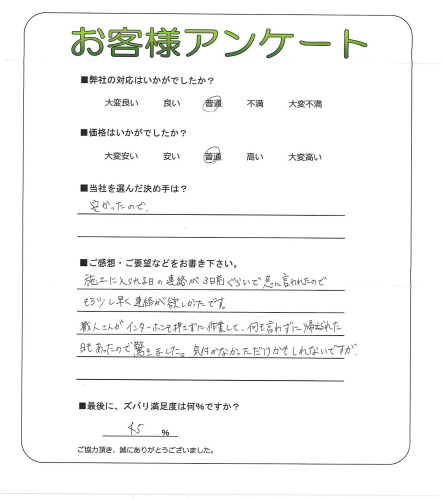 お客様アンケート
■弊社の対応はいかがでしたか？
大変良い 良い 普通 不満 大変不満
■価格はいかがでしたか？
大変安い 安い 普通 高い 大変高い
■当社を選んだ決め手は？
安かったので、
■ご感想・ご要望などをお書き下さい。
施工に入られる日の連絡が3日前ぐらいで急に言われたので
もう少し早く連絡が欲しかたです。
職人さんがインターホンも押さずに作業して、何も言わずに帰られた
日もあったので驚きました。気付かなかっただけかもしれないですが、
■最後に、ズバリ満足度は何%ですか？
45 %
ご協力頂き、誠にありがとうございました。